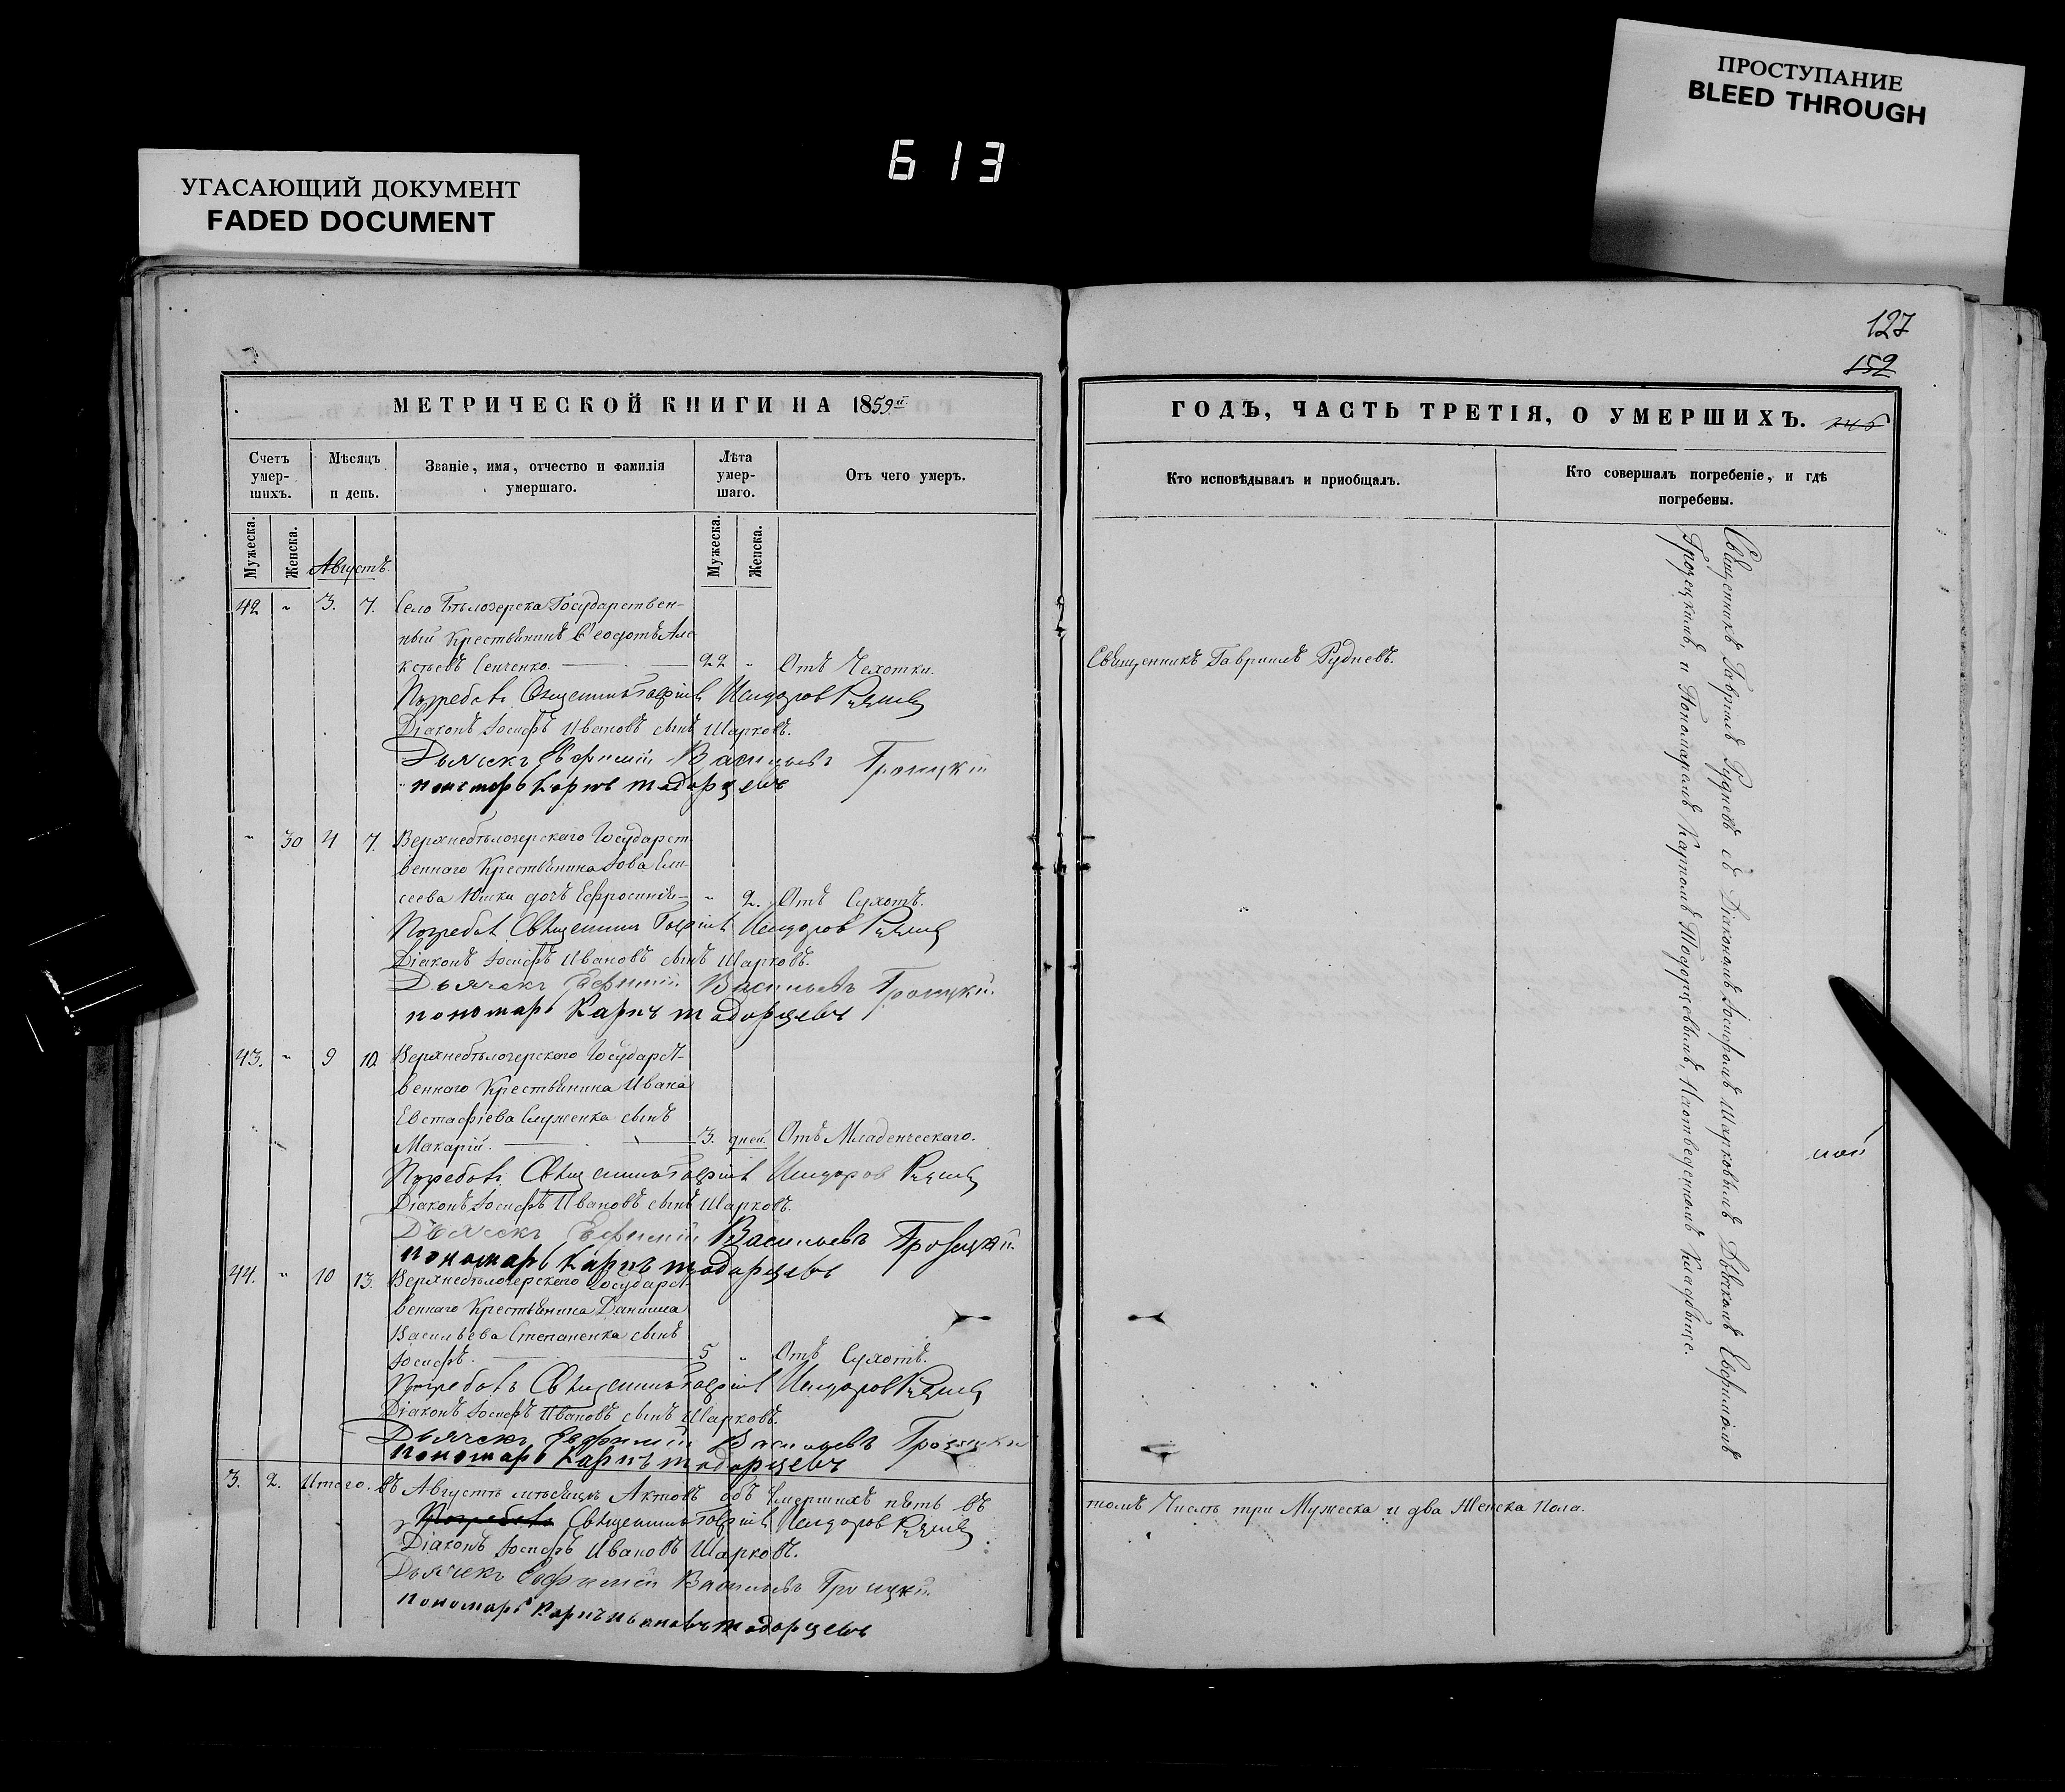 ПРОСТУПАНИЕ
BLEED THROUGH
613
УГАСАЮЩИЙ ДОКУМЕНТ
FADED DOCUMENT
127
152
МЕТРИЧЕСКОЙ КНИГИ НА 1859й
Счетъ умершихъ.
Мѣсяцъ и день.
Званіе, имя, отчество и фамилія умершаго.
Лѣта умершаго.
Отъ чего умеръ.
Мужеска.
Женска.
Мужеска.
Женска.
Августъ.
42 " 3. 7. Село Бѣлозерка Государствен-
ный Крестьянинъ Ѳеодотъ Але
ксѣевъ Сенченко. 22 " Отъ Чехотки.
Погребалъ Священникъ Гавріилъ Исидоровъ Рудневъ
Діаконъ Іосифъ Ивановъ сынъ Шарковъ.
Дьячекъ Евфимій Васильевъ Грозецкій
пономарь Карпъ Тодорцевъ
" 30 4 7. Верхнебѣлозерскаго Государст
веннаго Крестьянина Іова Ели
сеева Юшки дочь Ефросинія " 2. Отъ Сухотъ.
Погребалъ Священникъ Гавріилъ Исидоровъ Рудневъ
Діаконъ Іосифъ Ивановъ сынъ Шарковъ.
Дьячекъ Евфимій Васильевъ Грозецкій.
пономарь Карпъ Тодорцевъ
43. " 9 10. Верхнебѣлозерскаго Государст-
веннаго Крестьянина Ивана
Евстафіева Служенка сынъ
Макарій. 3. дней. Отъ Младенческаго.
Погребалъ Священникъ Гавріилъ Исидоровъ Рудневъ
Діаконъ Іосифъ Ивановъ сынъ Шарковъ.
Дьячекъ Евфимій Васильевъ Грозецкій.
пономарь Карпъ Тодорцевъ
44. " 10 13. Верхнебѣлозерскаго Государст-
веннаго Крестьянина Даніила
Васильева Степаненка сынъ
Іосифъ. 5 " Отъ Сухотъ.
Погребалъ Священникъ Гавріилъ Исидоровъ Рудневъ
Діаконъ Іосифъ Ивановъ сынъ Шарковъ.
Дьячекъ Евфимій Васильевъ Грозецкій
пономарь Карпъ Тодорцевъ
3. 2. Итого. въ Августѣ мѣсяцѣ Актовъ объ Умершихъ пять въ
Погребалъ Священникъ Гавріилъ Исидоровъ Рудневъ
Діаконъ Іосифъ Ивановъ Шарковъ.
Дьячекъ Евфимій Васильевъ Грозецкій
пономарь Карпъ Ивановъ Тодорцевъ
ГОДЪ, ЧАСТЬ ТРЕТІЯ, О УМЕРШИХЪ.
Кто исповѣдывалъ и пріобщалъ.
Кто совершалъ погребеніе, и гдѣ погребены.
Священникъ Гавріилъ Рудневъ.
Священникъ Гавріилъ Рудневъ съ Діакономъ Іосифомъ Шарковымъ Дьякомъ Евфиміемъ
Грозецкимъ, и Пономаремъ Карпомъ Тодорцевымъ, На отведенномъ Кладбище.
томъ Числѣ три Мужеска и два Женска Пола.